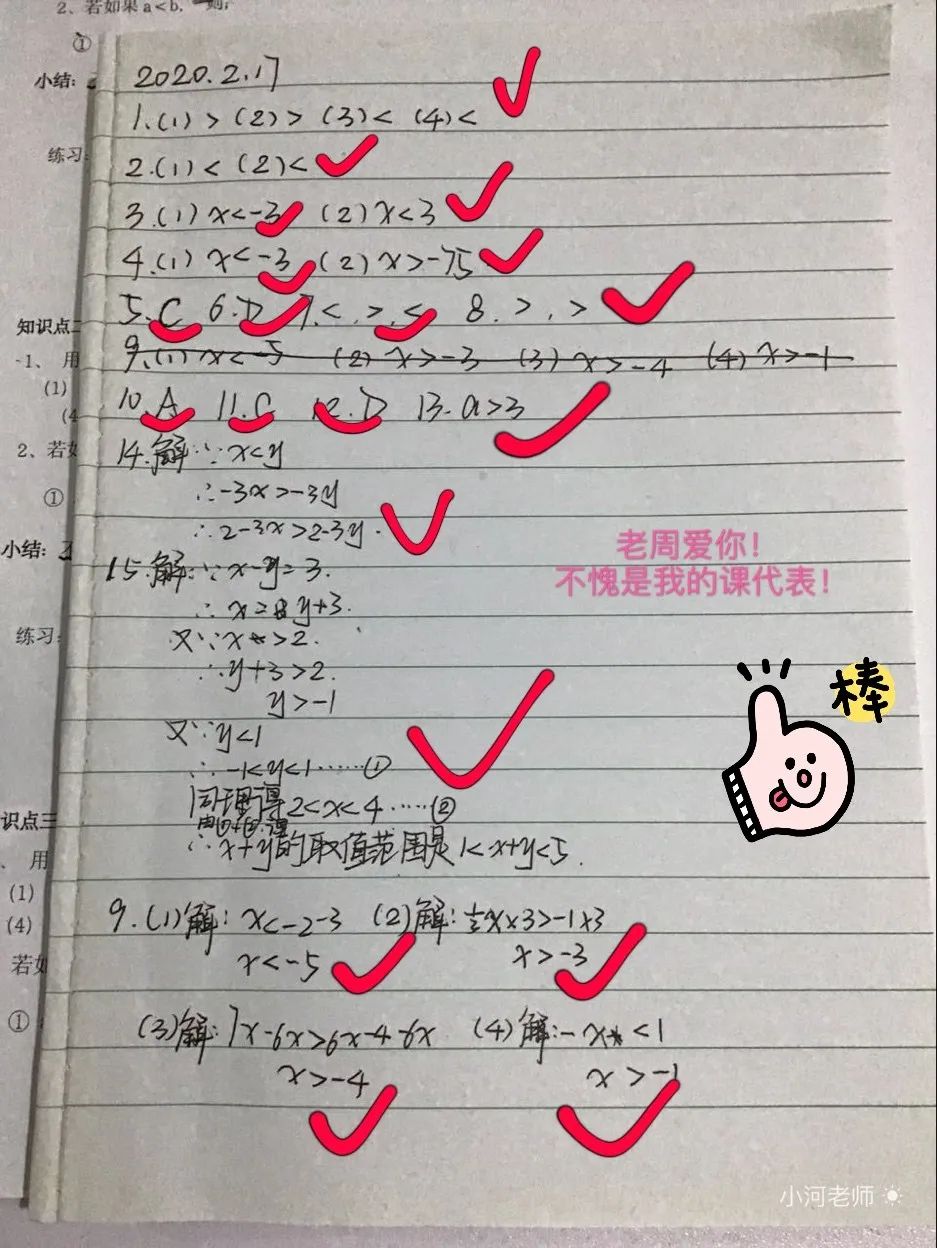 2、若如果a<b,则;
①
小结:
2020.2.17
1.(1) > (2) > (3) < (4) <
练习:
2.(1) < (2) <
3.(1) x<-3 (2) x<3
4.(1) x<-3 (2) x>-75
5.C 6.D 7.<,>,< 8.>,>
知识点二
1、用
9.(1) x<-5 (2) x>-3 (3) x>-4 (4) x>-1
(1)
(4
10.A 11.C 12.D 13.a>3
2、若如
14.解:∵x<y
①
∴-3x>-3y
∴2-3x>2-3y.
老周爱你!
不愧是我的课代表!
小结:
15.解:∵x-y=3.
∴x=y+3.
练习:
又∵x>2.
∴y+3>2.
y>-1
棒
又∵y<1
∴-1<y<1……①
同理得2<x<4……②
由①+②得
∴x+y的取值范围是1<x+y<5.
识点三
、用
(1)
(4)
9.(1)解:x<-2-3 (2)解:⅓x×3>-1×3
x<-5 x>-3
若如
①
(3)解:7x-6x>6x-4-6x (4)解:-x<1
x>-4 x>-1
小河老师